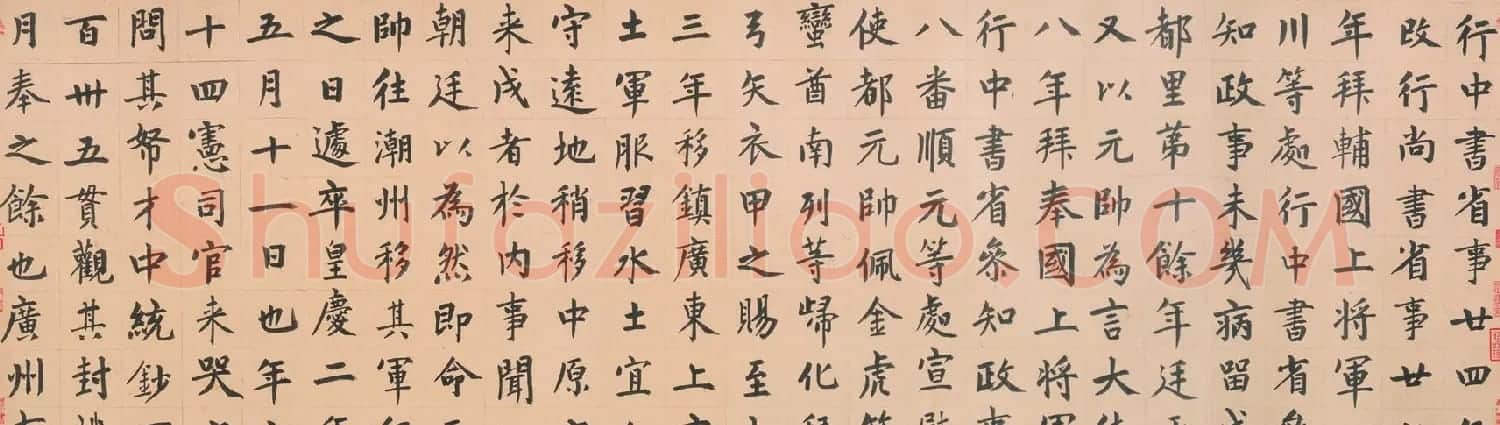 行中書省事廿四
改行尚書省事廿
年拜輔國上將軍
川等處行中書省
知政事未幾病留
都里第十餘年廷
又以元帥為言大
八年拜奉國上將
行中書省叅知政
八番順元等處宣
使都元帥佩金虎
蠻酋南列等歸化
弓矢衣甲之賜至
三年移鎮廣東上
土軍服習水土宜
守遠地稍移中原
来戍者於内事聞
朝廷以為然即命
帥往潮州移其軍
之日遽卒皇慶二
五月十一日也年
十四憲司官来哭
問其帑才中統鈔
百卅五貫觀其封
月奉之餘也廣州
Shufaziliao.COM